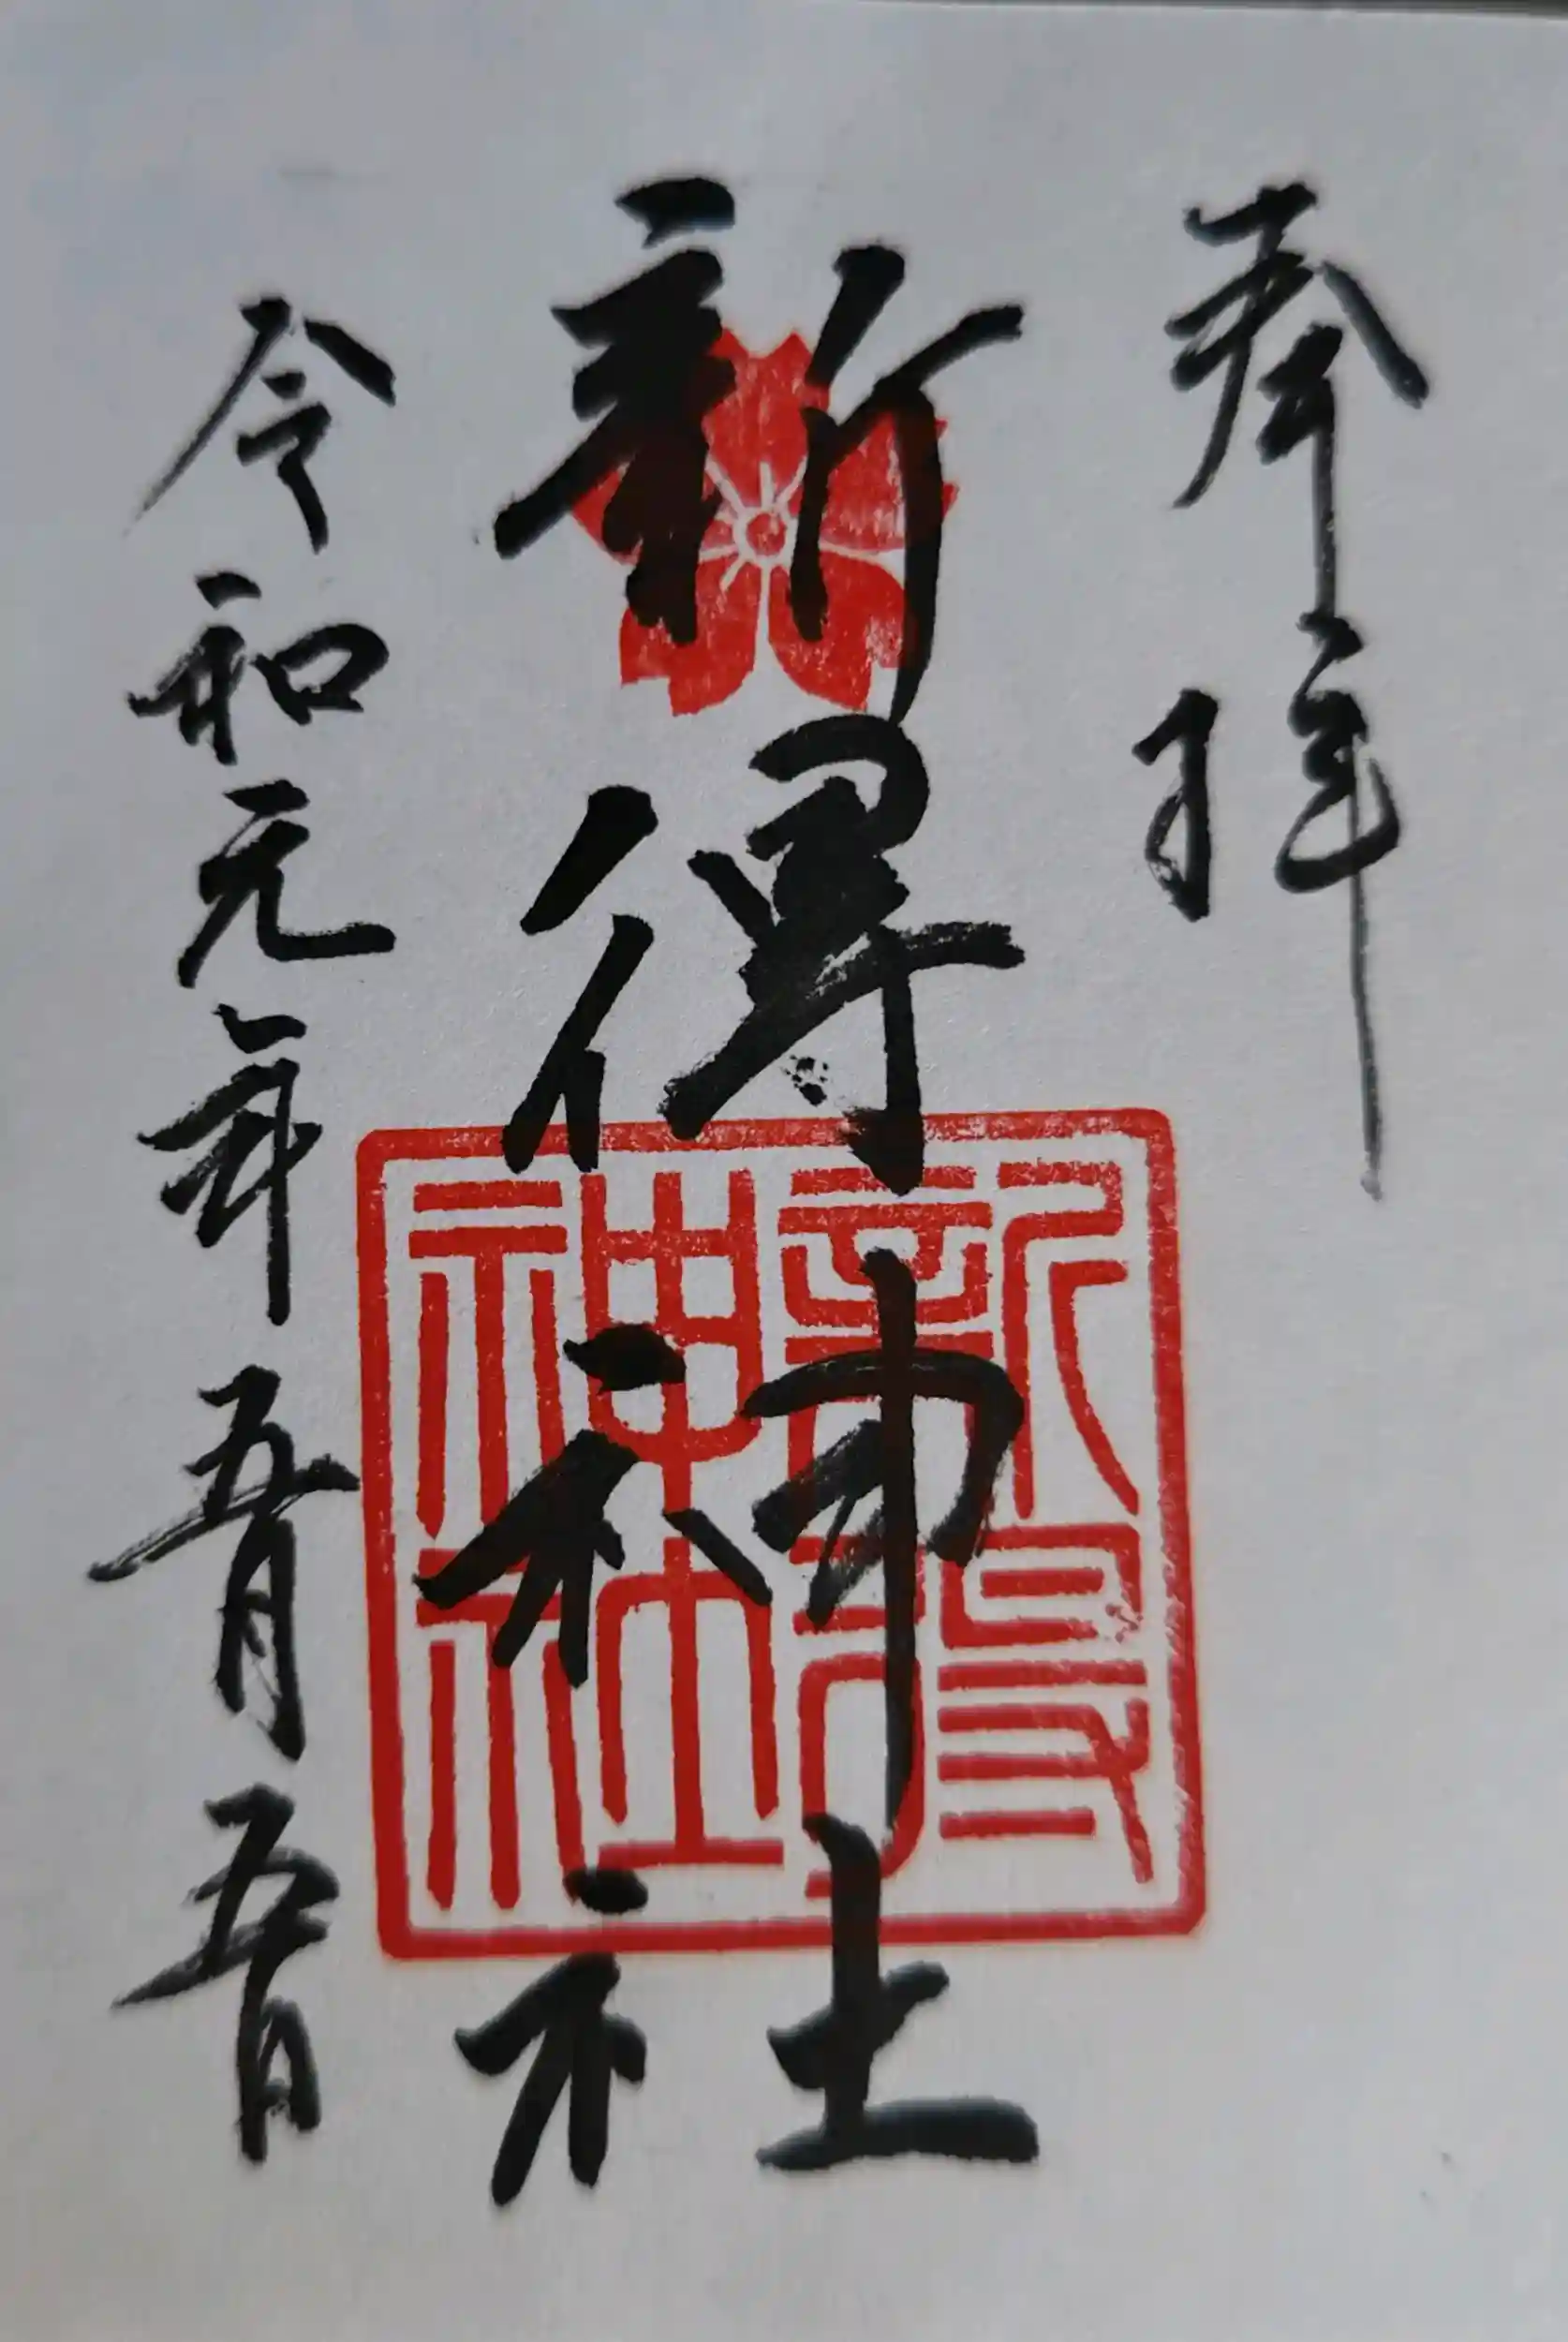 奉拝
新得神社
新得神社
令和元年五月五日